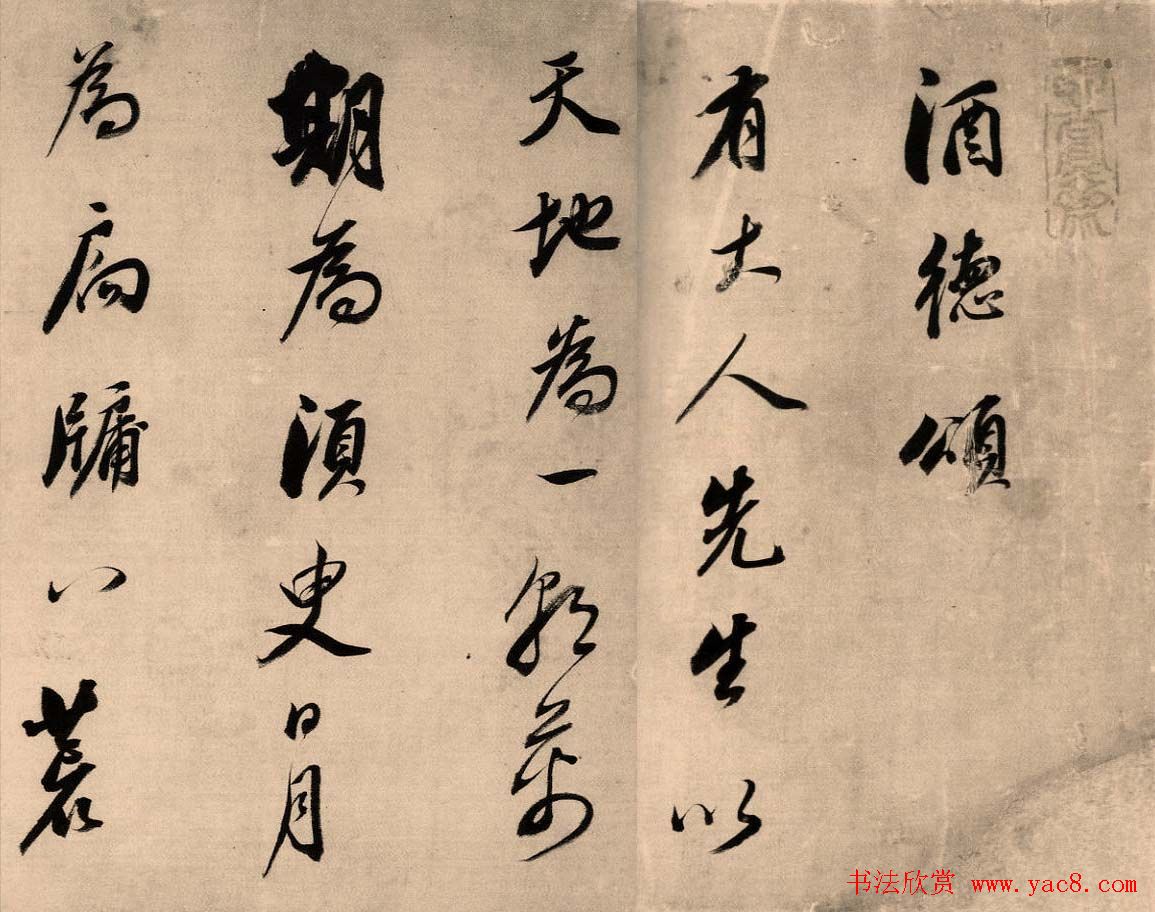 酒德頌
有大人先生以
天地為一朝萬
期為須臾日月
為扃牖八荒
书法欣赏 www.yac8.com